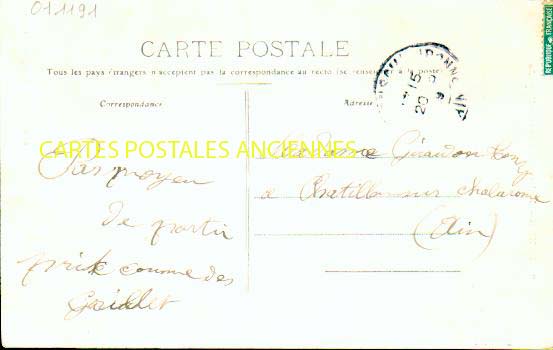 011191
CARTE POSTALE
Tous les pays étrangers n'acceptent pas la correspondance au recto (se renseigner à la poste)
Correspondance
Adresse
CARTES POSTALES ANCIENNES
Madame Girardon
à Chatillon sur Chalaronne
(Ain)
Pas moyen
de partir
prise comme des
REPUBLIQUE FRANÇAISE
15
20